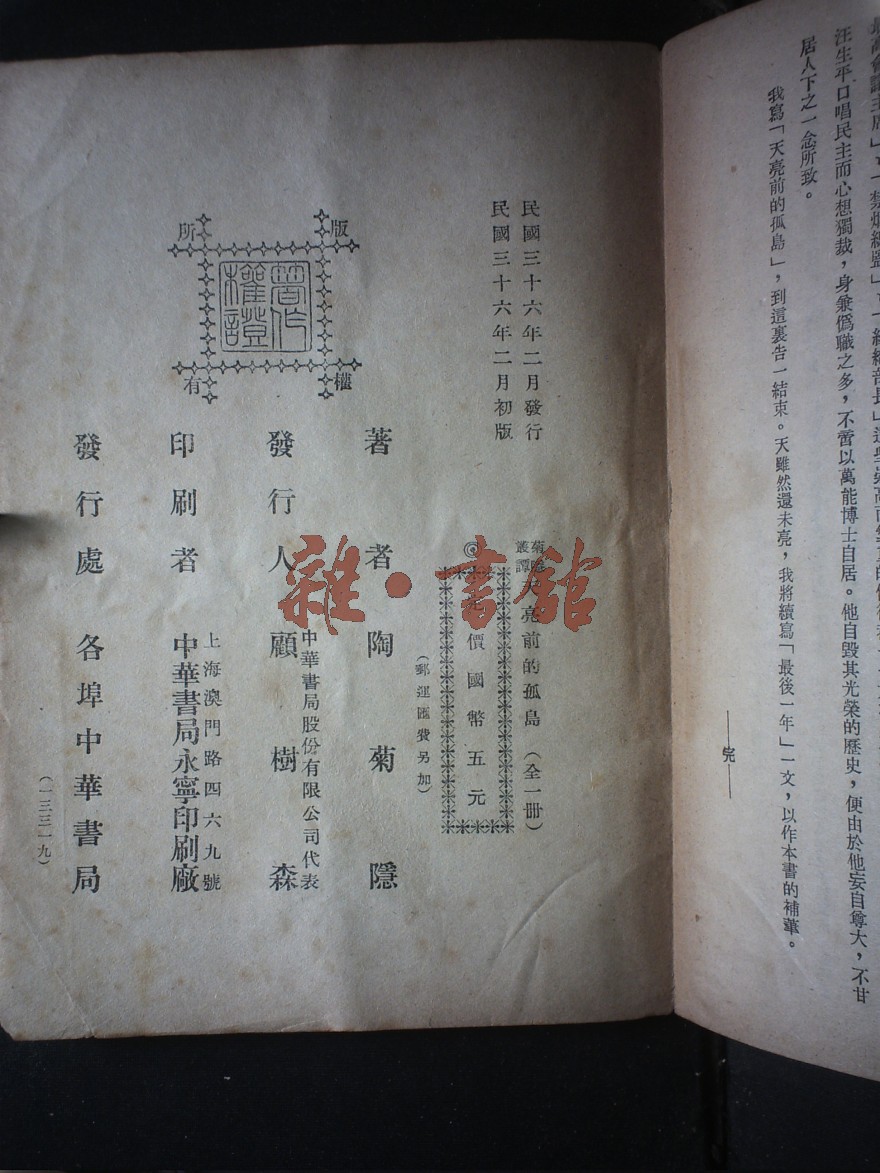 汪生平口唱民主而心想獨裁，身兼僞職之多，不啻以萬能博士自居。他自毀其光榮的歷史，便由於他妄自尊大，不甘
居人下之一念所致。
我寫「天亮前的孤島」，到這裏告一結束。天雖然還未亮，我將續寫「最後一年」一文，以作本書的補葺。
——完——
民國三十六年二月發行
民國三十六年二月初版
亮前的孤島（全一冊）
價國幣五元
（郵運匯費另加）
著者 陶菊隱
中華書局股份有限公司代表
發行人 顧樹森
上海澳門路四六九號
印刷者 中華書局永寧印刷廠
發行處 各埠中華書局
（一三三一九）
版權所有
著作權證
雜·書館